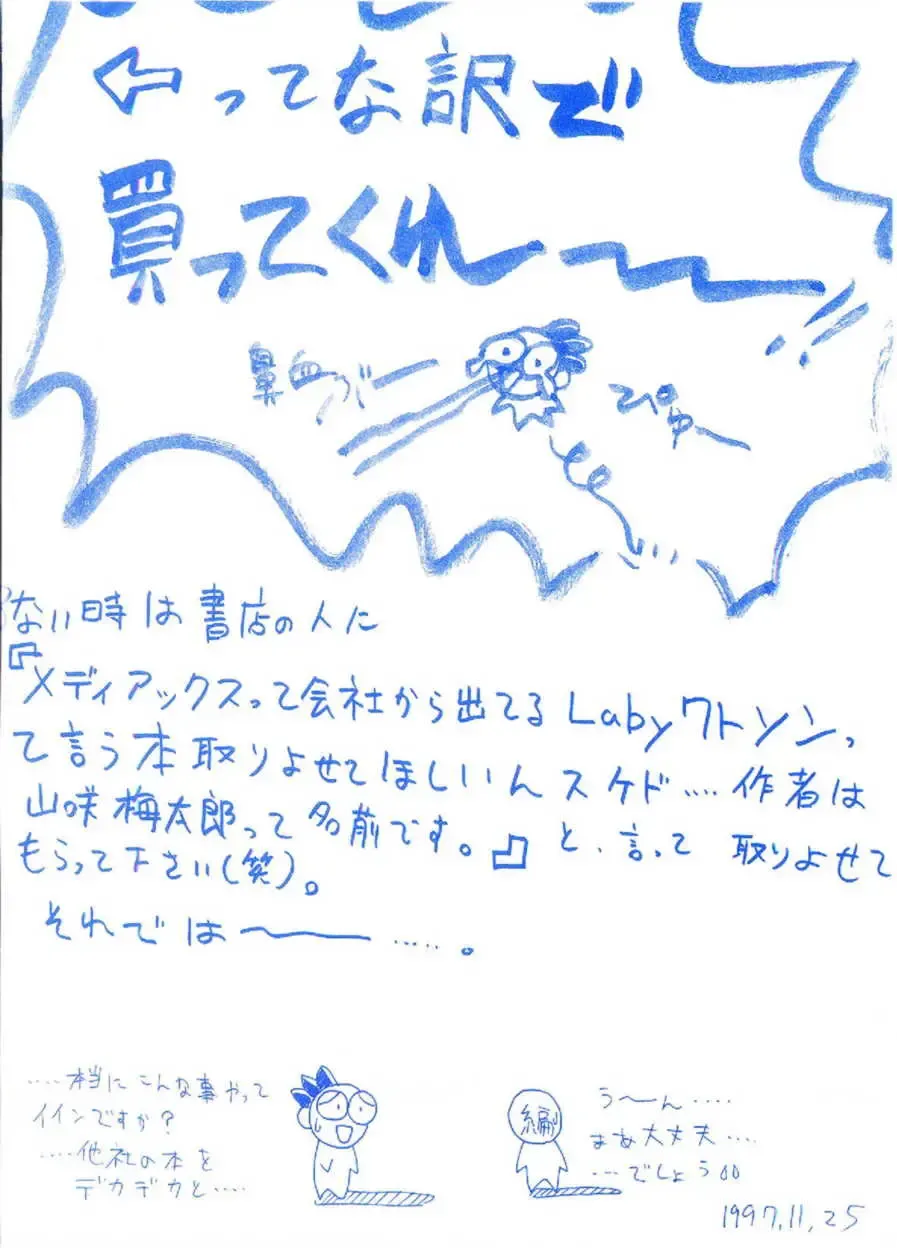 ってな訳で
買ってくれ〜〜!!
鼻血ブー
ぴゅ〜
ない時は書店の人に
『メディアックスって会社から出てるLabyワトソンっ
て言う本取りよせてほしいんスケド‥‥作者は
山咲梅太郎って名前です。』と、言って取りよせて
もらって下さい(笑)。
それでは〜‥‥‥。
‥‥本当にこんな事やって
イインですか?
‥‥他社の本を
デカデカと‥‥
編
う〜ん‥‥
まあ大丈夫‥‥
‥‥でしょう
1997.11.25